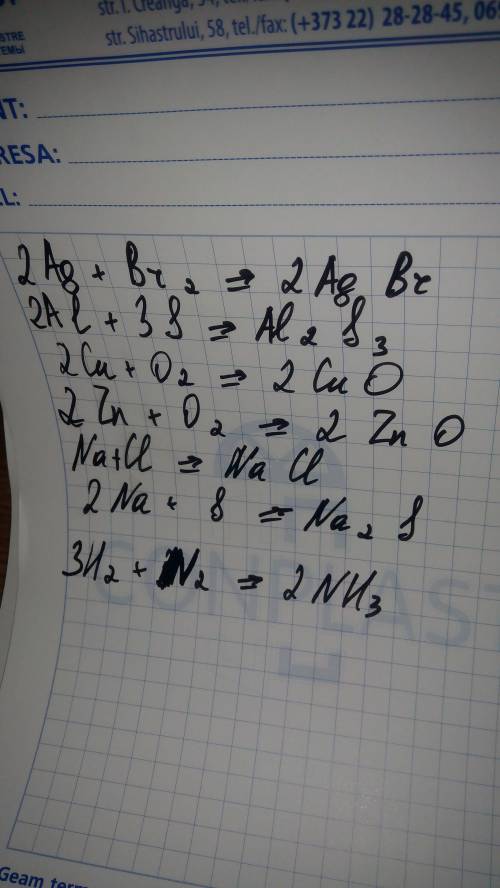 str. I. Creangă, 54, tel.
str. Sihastrului, 58, tel./fax: (+373 22) 28-28-45, 069
STRE
ТЕМЫ
NT:
RESA:
L:
2Ag + Br₂ ⇒ 2AgBr
2Al + 3S ⇒ Al₂S₃
2Cu + O₂ ⇒ 2CuO
2Zn + O₂ ⇒ 2ZnO
Na+Cl ⇒ NaCl
2Na + S ⇒ Na₂S
3H₂ + N₂ ⇒ 2NH₃
CONPLAST
Geam term